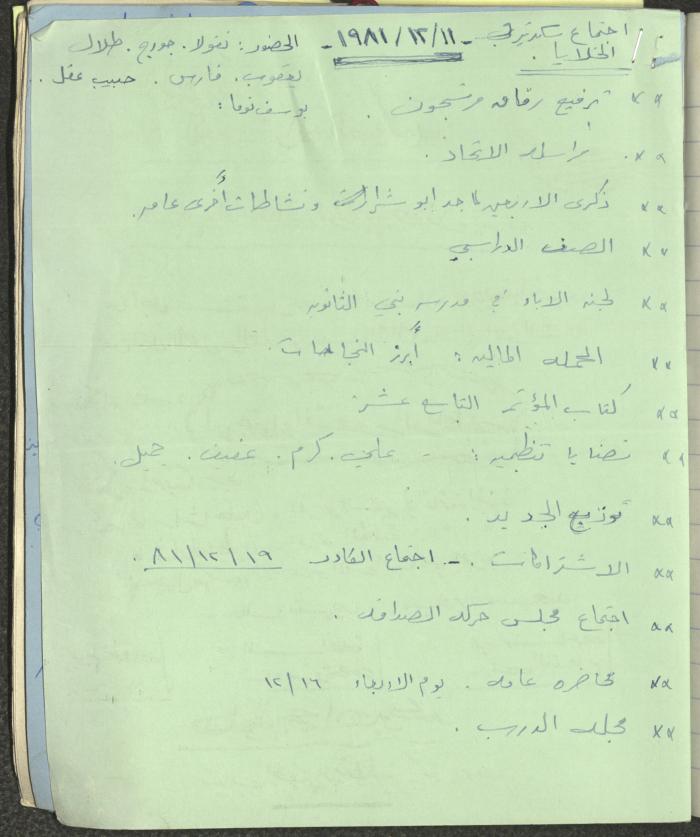 اجتماع سكرتيري الخلايا. - ١٩٨١/١٢/١١ - الحضور: نقولا. جورج. طلال
يعقوب. فارس. حبيب عقل.
يوسف نوفا:
×× ترفيع رفاق مرشحون.
××. مراسلو الاتحاد.
×× ذكرى الاربعين لماجد ابو شرار ونشاطات أخرى عامه.
×× الصف الدراسي
×× لجنة الاباء في مدرسه بني الثانويه
×× الحمله الماليه: أبرز النجاحات
×× كتاب المؤتمر التاسع عشر
×× قضايا تنظيميه: - علي. كرم. عفيف. جميل.
×× توزيع الجديد.
×× الاشتراكات. - اجتماع الكادر ٨١/١٢/١٩.
×× اجتماع مجلس حركه الصداقه.
×× محاضره عامه. يوم الاربعاء ١٢/١٦
×× مجله الدرب.